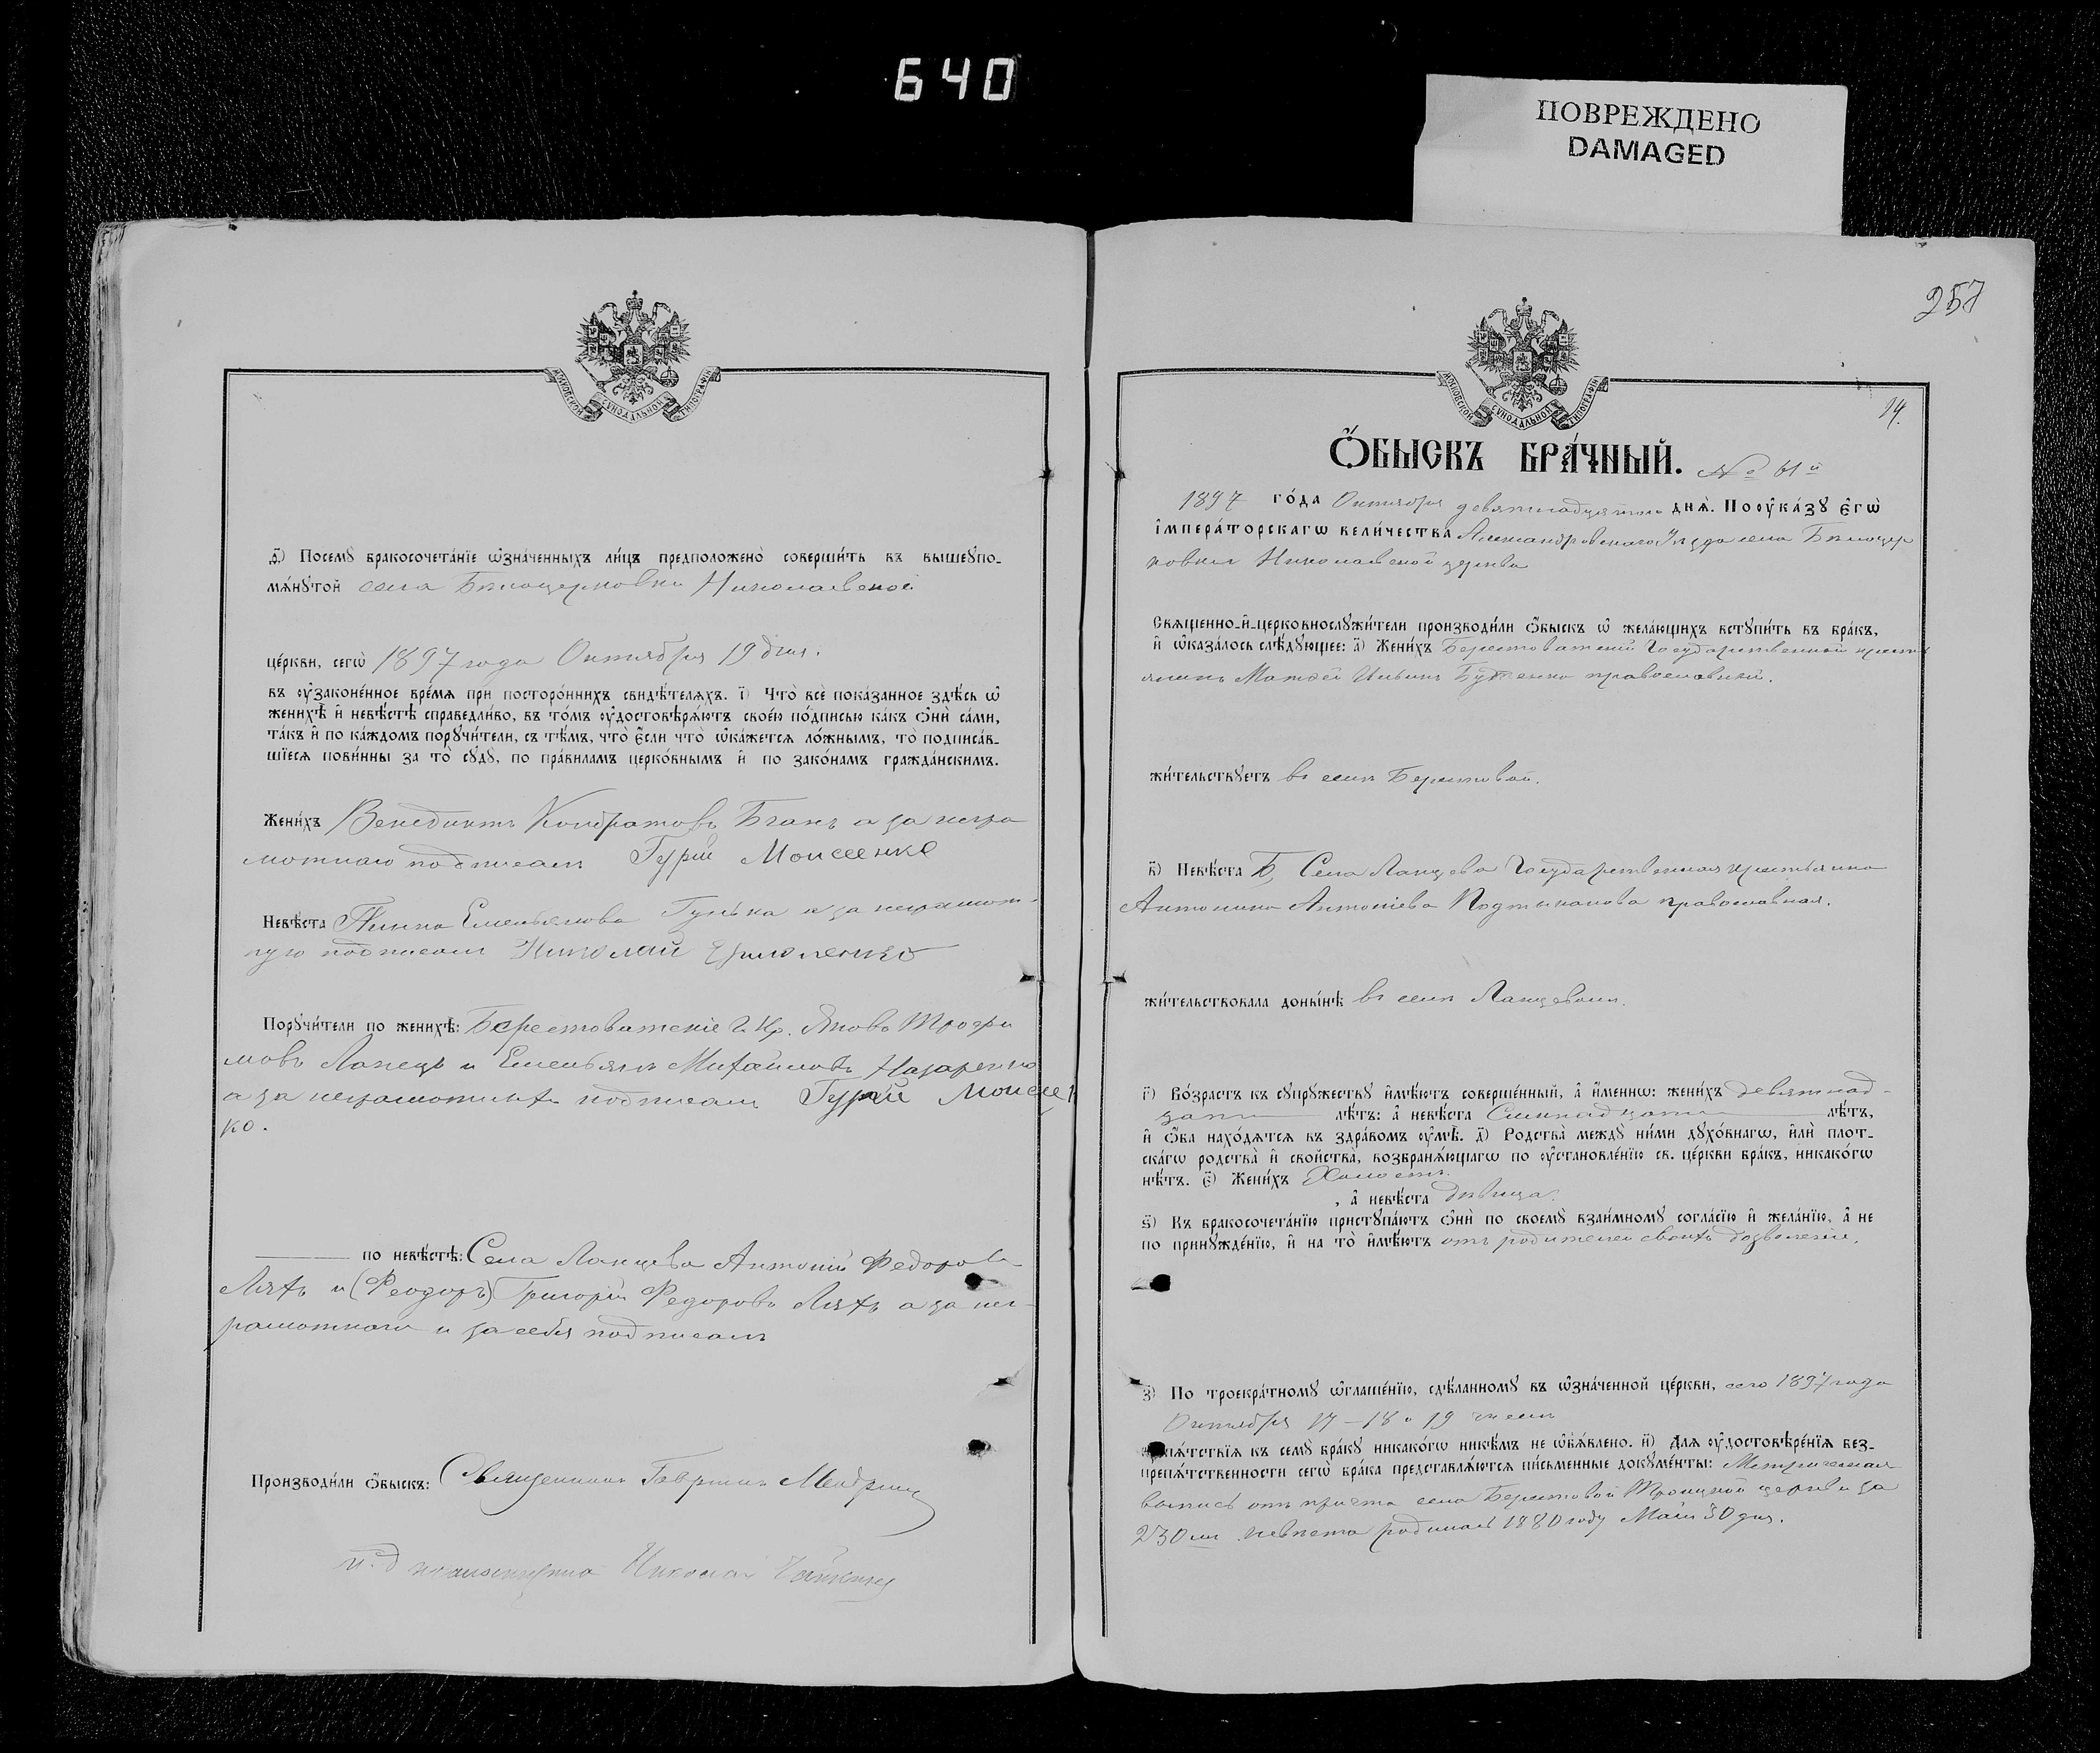 640
ПОВРЕЖДЕНО
DAMAGED
МОСКОВСКОЙ СѴНОДАЛЬНОЙ ТИПОГРАФІИ
ѳ҃) Посемꙋ̀ бракосочета́нїе ѡ҆зна́ченныхъ ли́цъ предположено̀ соверши́ть въ вышеꙋпо-
мѧ́нꙋтой села Бѣлоцерковки Николаевской
це́ркви, сегѡ̀ 1897 года Октября 19 дня.
въ ᲂу҆зако́не́нное вре́мѧ при посторо́ннихъ свидѣ́телѧхъ. і҃) Что̀ всѐ пока́занное здѣ́сь ѡ҆
женихѣ̀ и҆ невѣ́стѣ справедли́во, въ то́мъ ᲂу҆достовѣрѧ́ютъ свое́ю по́дписью ка́къ ѻ҆нѝ са́ми,
та́къ и҆ по ка́ждомъ порꙋчи́тели, съ тѣ́мъ, что̀ є҆́сли что̀ ѡ҆ка́жетсѧ ло́жнымъ, то̀ подписа́в-
шїесѧ пови́нны за то̀ сꙋдꙋ̀, по пра́виламъ церко́внымъ и҆ по зако́намъ гражда́нскимъ.
Жени́хъ Венедиктъ Кондратовъ Бганъ а за негра
мотнаго подписалъ Гурій Моисеенко
Невѣ́ста Емельянова Гунька а за неграмот-
ную подписалъ Николай
Порꙋчи́тели по женихѣ̀: Берестоватскіе Г. Кр. Яковъ Трофи
мовъ Лапецъ и Емельянъ Михайловъ Назаренко
а за неграмотныхъ подписалъ Гурій Моисеен
ко.
по невѣ́стѣ: Села Ланцева Антоній Федоровъ
Ляхъ и (Феодоръ) Григорій Федоровъ Ляхъ а за нег-
рамотнаго и за себя подписалъ
Производи́ли ѻ҆́быскъ: Священникъ Гавріилъ
и. д псаломщика Николай
257
МОСКОВСКОЙ СѴНОДАЛЬНОЙ ТИПОГРАФІИ
14.
Ѻ҆́БЫСКЪ БРА́ЧНЫЙ. № 61й
1897 го́да Октября девятнадцатаго днѧ̀. По ᲂу҆ка́зꙋ є҆гѡ̀
і҆мпера́торскагѡ вели́чества Александровскаго Уѣзда села Бѣлоцер
ковки Николаевской церкви
Свѧщенно-и҆-церковнослꙋжи́тели производи́ли ѻ҆́быскъ ѡ҆ жела́ющихъ встꙋпи́ть въ бра́къ,
и҆ ѡ҆каза́лось слѣ́дꙋющее: а҃) Жени́хъ Берестоватскій Государственный кресть
янинъ Матѳей Ильинъ Бутенко православный.
жи́тельствꙋетъ въ селѣ Берестовой.
в҃) Невѣ́ста Села Ланцева Государственная крестьянка
Антонина Антоніева православная.
жи́тельствовала доны́нѣ въ селѣ Ланцевомъ.
г҃) Во́зрастъ къ сꙋпрꙋ́жествꙋ и҆мѣ́ютъ соверше́нный, а҆ и҆́менно: жени́хъ девятнад-
цати лѣ́тъ: а҆ невѣ́ста Семнадцати лѣ́тъ,
и҆ ѻ҆́ба нахо́дѧтсѧ въ здра́вомъ ᲂу҆мѣ̀. д҃) Родства̀ междꙋ̀ ни́ми дꙋхо́внагѡ, и҆лѝ плот-
ска́гѡ родства̀ и҆ свойства̀, возбранѧ́ющагѡ по ᲂу҆становле́нїю св. це́ркви бра́къ, никако́гѡ
нѣ́тъ. є҃) Жени́хъ Холостъ
, а҆ невѣ́ста дѣвица.
ѕ҃) Къ бракосочета́нїю пристꙋпа́ютъ ѻ҆нѝ по своемꙋ̀ взаи́мномꙋ согла́сїю и҆ жела́нїю, а҆ не
по принꙋжде́нїю, и҆ на то̀ и҆мѣ́ютъ отъ родителей своихъ дозволеніе.
з҃) По троекра́тномꙋ ѡ҆глаше́нїю, сдѣ́ланномꙋ въ ѡ҆зна́ченной це́ркви, сего 1897 года
Октября 17-18 и 19 чиселъ
пѧ́тствїѧ къ семꙋ̀ бра́кꙋ никако́гѡ никѣ́мъ не ѡ҆б̾ѧ́влено. и҃) Длѧ ᲂу҆достовѣре́нїѧ без-
препѧ́тственности сегѡ̀ бра́ка представлѧ́ютсѧ пи́сьменные докꙋме́нты: Метрическая
выпись отъ причта села Берестовой Троицкой церкви за
230 мъ невѣста родилась 1880 году Мая 30 дня.